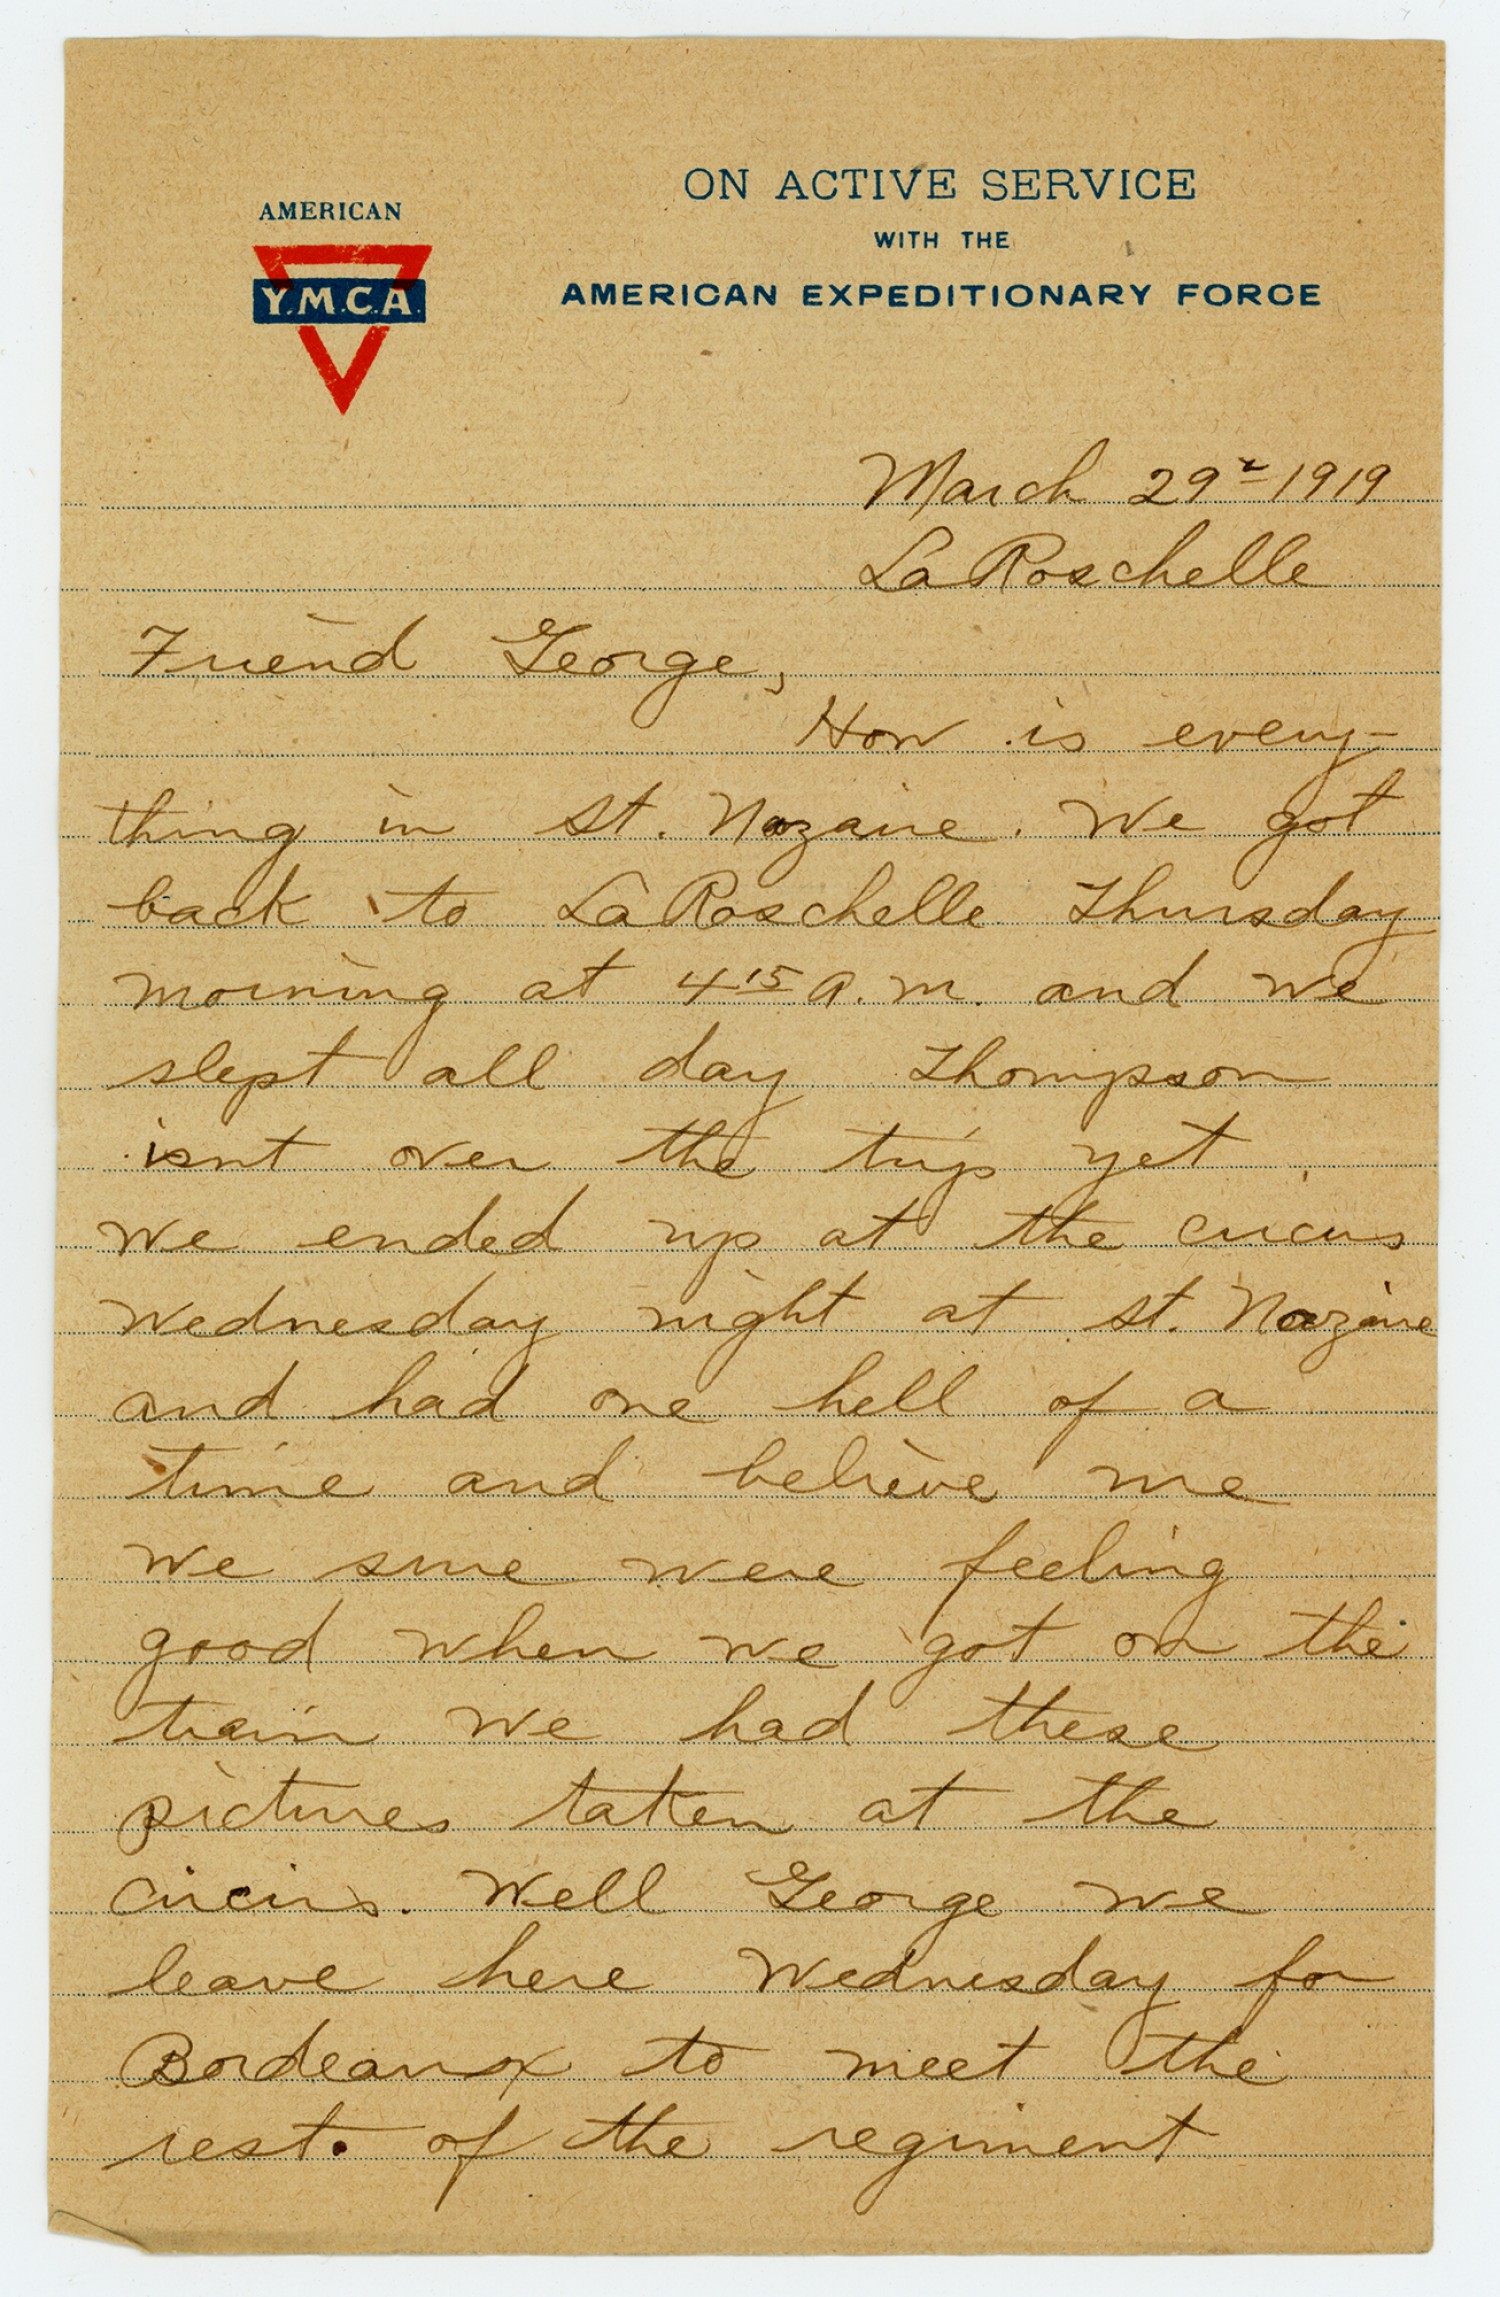 AMERICAN
Y.M.C.A.
ON ACTIVE SERVICE
WITH THE
AMERICAN EXPEDITIONARY FORCE
March 29th 1919
La Roschelle
Friend George,
How is every-
thing in St. Nazaire. We got
back to La Roschelle Thursday
morning at 4 15 a.m. and we
slept all day Thompson
isnt over the trip yet.
We ended up at the circus
Wednesday night at St. Nazaire
and had one hell of a
time and believe me
we sure were feeling
good when we got on the
train we had these
pictures taken at the
circus. Well George we
leave here Wednesday for
Bordeaux to meet the
rest. of the regiment